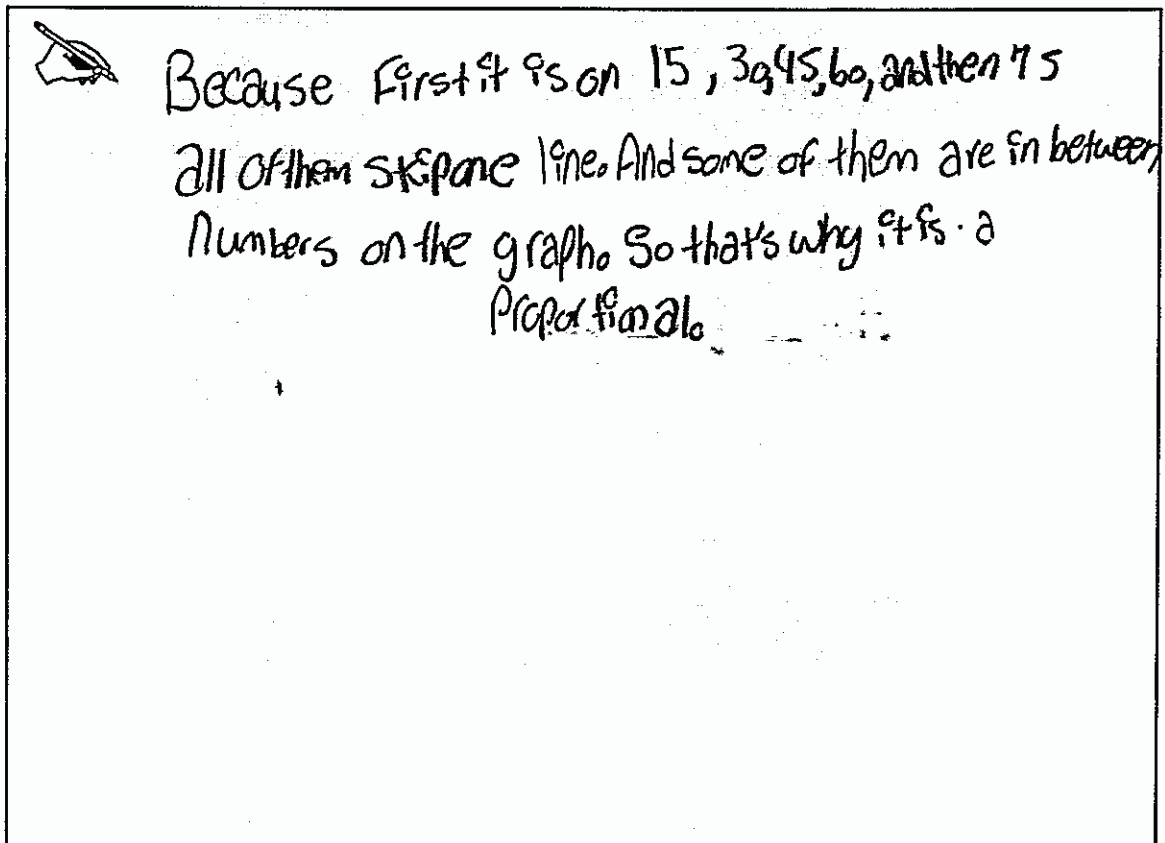 Because First it is on 15, 30,45,60, and then 75
all of them skip one line. And some of them are in between
numbers on the graph. So that's why it is a
Proportional.